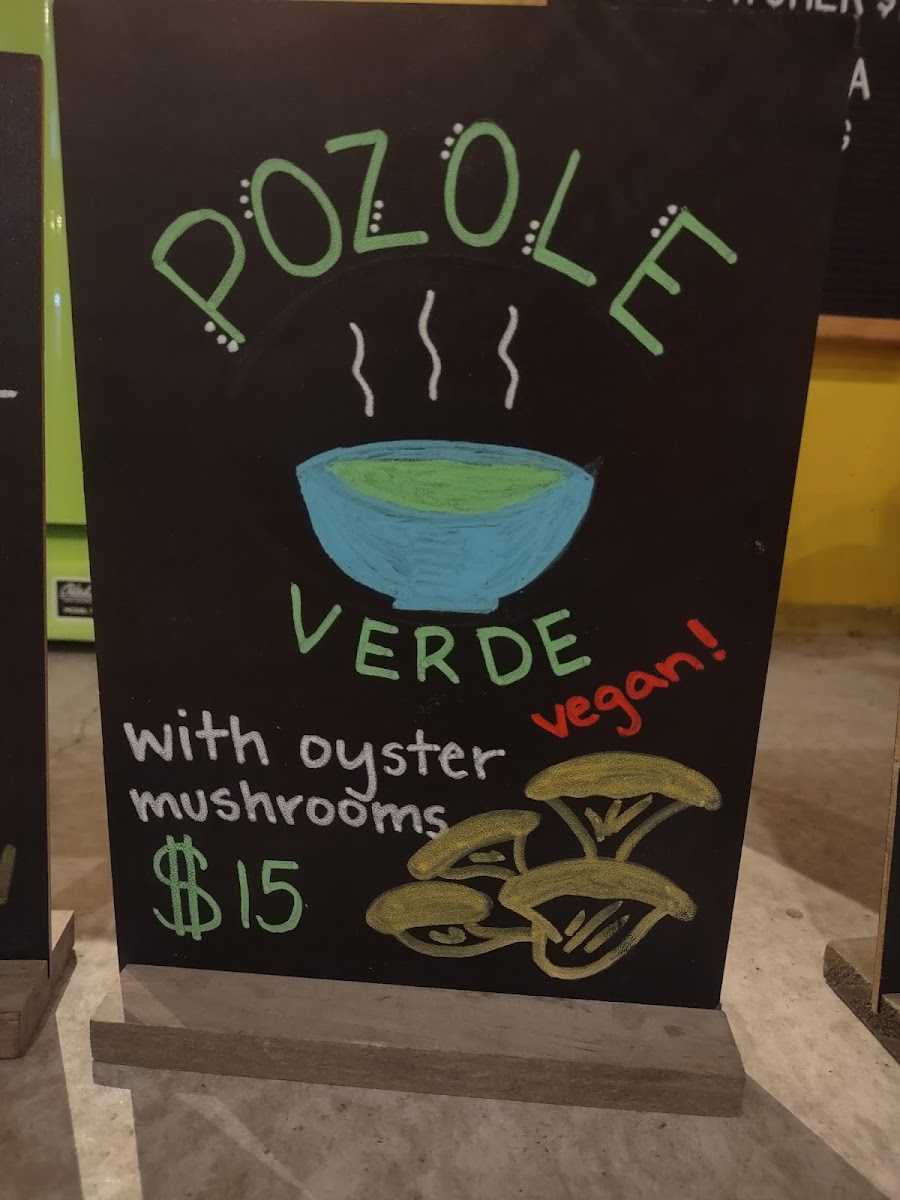 POZOLE
VERDE
vegan!
with oyster
mushrooms
$15